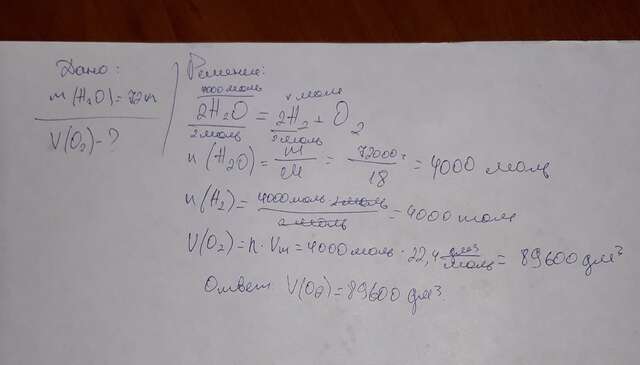 Дано:
m(H₂O)=72
V(O₂)-?
Решение:
4000 моль x моль
2H₂O = 2H₂ + O₂
2 моль 2 моль
n(H₂O) = m/M = 72000/18 = 4000 моль
n(H₂) = 4000 моль · 2 моль / 2 моль = 4000 моль
V(O₂) = n · Vm = 4000 моль · 22,4 дм³/моль = 89600 дм³
Ответ: V(O₂) = 89600 дм³.